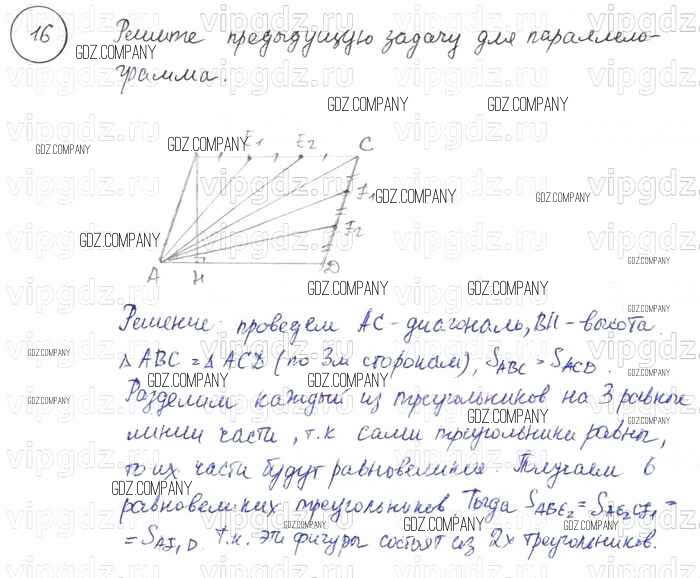 16 Решите предыдущую задачу для параллело-
грамма.
E1 E2 C
F1
F2
A H D
Решение: проведем AC - диагональ, BH - высота.
△ ABC = △ ACD (по 3м сторонам), S_ABC = S_ACD.
Разделим каждый из треугольников на 3 равные
части, т.к сами треугольники равны,
то их части будут равновеликие. Получаем 6
равновеликих треугольников. Тогда S_ABE2 = S_AE2CF1 =
= S_AF1D. Т.к. эти фигуры состоят из 2х треугольников.
GDZ.COMPANY
vipgdz.ru